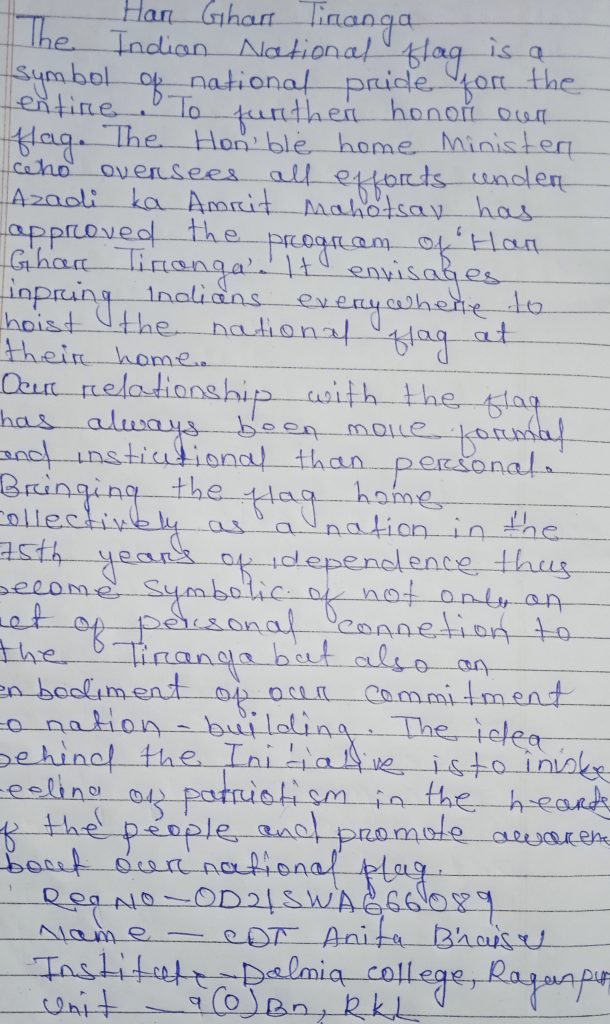 Har Ghar Tiranga
The Indian National flag is a
symbol of national pride for the
entire. To further honor our
flag. The Hon'ble home Minister
who oversees all efforts under
Azadi ka Amrit Mahotsav has
approved the program of 'Har
Ghar Tiranga'. It envisages
inpring Indians everywhere to
hoist the national flag at
their home.
Our relationship with the flag
has always been more formal
and instiutional than personal.
Bringing the flag home
collectively as a nation in the
75th years of idependence thus
become symbolic of not only an
act of personal connetion to
the Tiranga but also an
en bodiment of our commitment
to nation-building. The idea
behind the Initiative is to invoke
feeling of patriotism in the hearts
of the people and promote awaren
bout our national flag.
Reg No - OD21SWA666089
Name - CDT Anita Bhaisal
Institute - Dalmia college, Rajganpur
Unit - 9(O)Bn, RKL